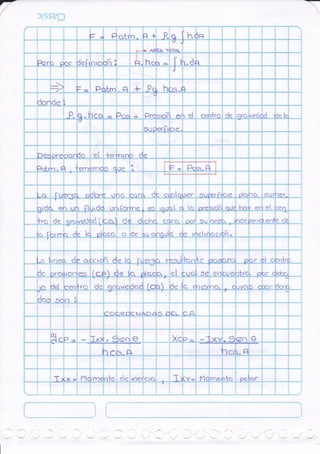 F = Patm. A + P.g ∫ hdA
AREA TOTAL
Pero por definición : A. hca = ∫ h. dA
=> F = Patm. A + Pg hca. A
donde :
P. g. hca = Pca = Presión en el centro de gravedad de la
superficie.
Despreciando el termino de
Patm. A , tenemos que : F = Pca. A
La fuerza sobre una cara de cualquier superficie plana sumer-
gida en un fluido uniforme, es igual a la presión que hay en el cen
tro de gravedad (CG) de dicha cara por su area, independiente de
la forma de la placa o de su angulo de inclinación.
La linea de acción de la fuerza resultante pasara por el centro
de presiones (CP) de la placa, el cual se encuentra por deba
jo del centro de gravedad (CG) de la misma, cuyas coordena
das son :
COORDENADAS DEL C.P.
Ycp = - Ixx. Sen θ Xcp = - Ixy. Sen θ
hca. A hca. A
Ixx = Momento de inercia , Ixy = Momento polar